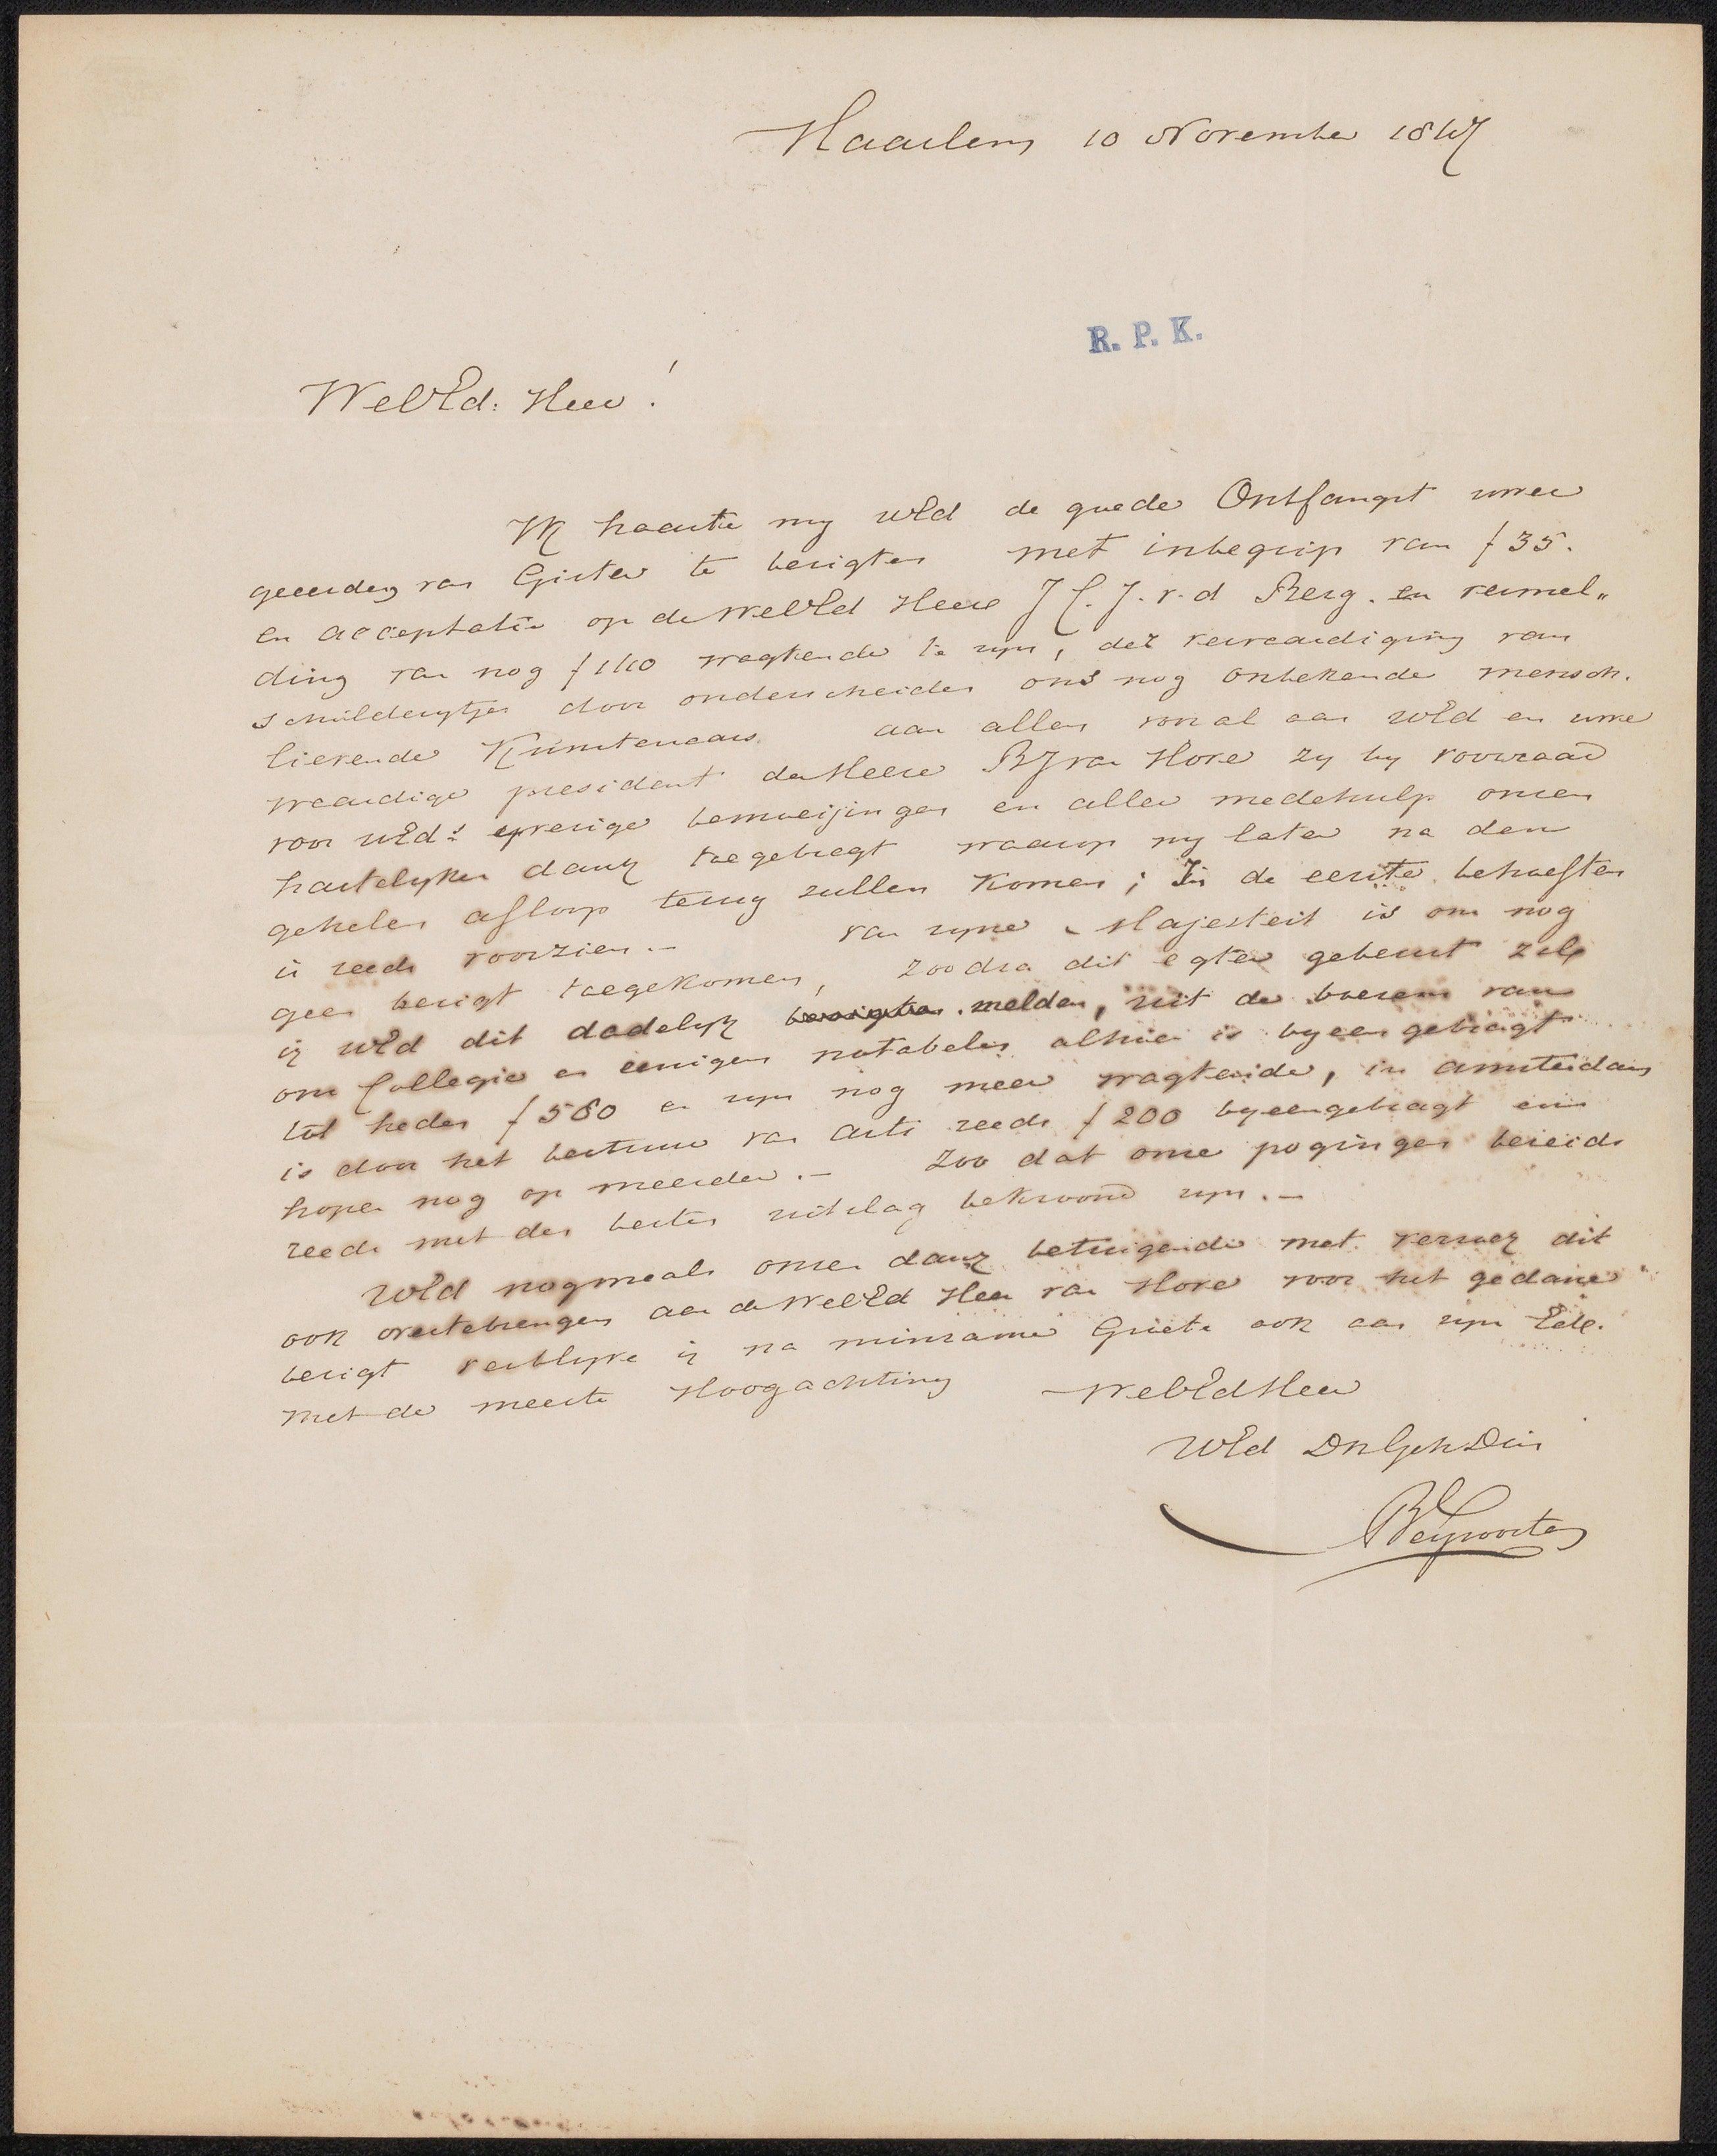 Haarlem 10 November 1847
R. P. K.
WelEd: Heer!
Ik haaste my WEd de goede Ontfangst uwer
geeerden van Gister te berigten met inbegrip van f 35.
en acceptatie op de WelEd Heere J C. J. v. d Berg. en vermel„
ding van nog f 140 wagtende te zyn, der vervaardiging van
schilderytjes door onderscheiden ons nog onbekende mensch.
lievende Kunstenaars. aan allen vooral aan WEd en uwe
waardige president de Heere BJ van Hove zy by voorraad
voor WEds: yverige bemoeijingen en aller medehulp onsen
hartelyken dank toegebragt waarop wy later na den
gehelen afloop terug zullen komen; In de eerste behoeften
is reeds voorzien. - van zyne Majesteit is ons nog
geen berigt toegekomen, zoodra dit egter gebeurt zal
ik WEd dit dadelyk melden, uit de boesem van
ons Collegie en eenigen notabelen alhier is byeen gebragt
tot heden f 580 en zyn nog meer wagtende, in Amsterdam
is door het bestuur van Arti reeds f 200 byeengebragt en
hopen nog op meerder. - Zoo dat onse pogingen bereids
reeds met den besten uitslag bekroond zyn. -
WEd nogmaals onsen dank betuigende met verzoek dit
ook overtebrengen aan de WelEd Heer van Hove voor het gedane
berigt verblyve ik na minzame Groete ook aan zyn Ed.
met de meeste Hoogachting WelEd Heer
WEd